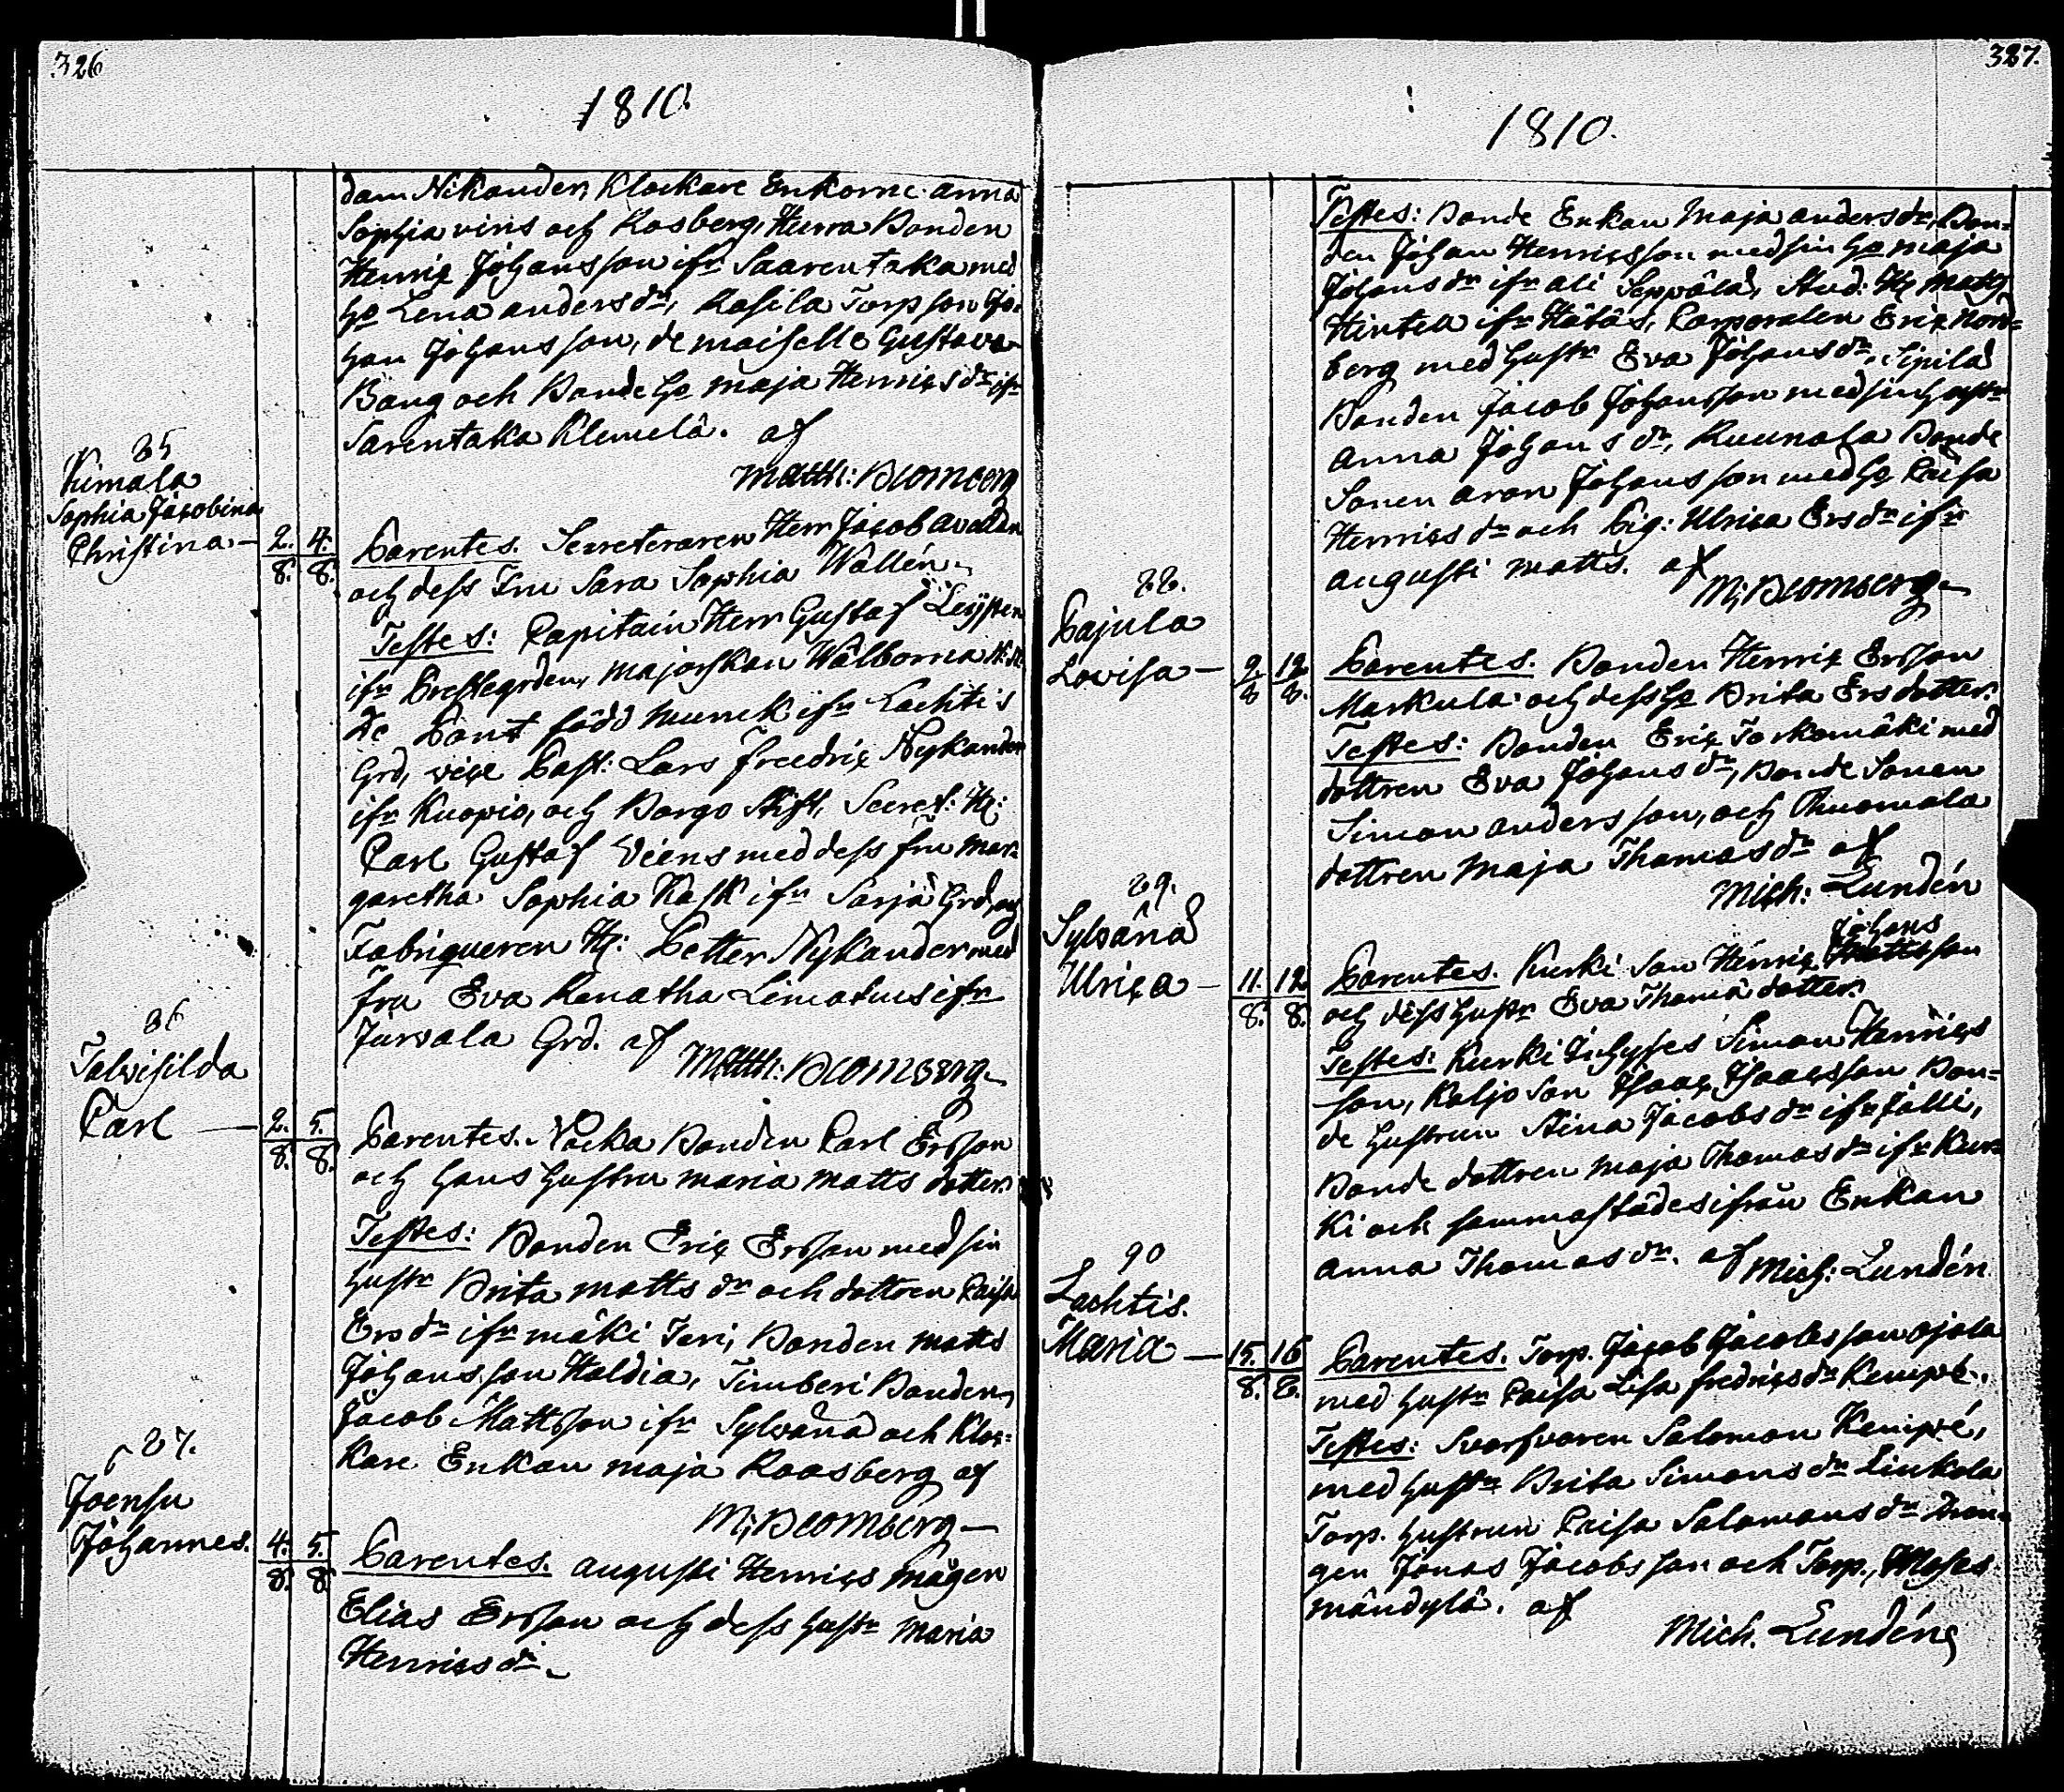 326
1810.
dam Nikander, Klockare Enkorne Anna
Sophia vins och Rosberg, Hurra Bonden
Henric Johansson ifr Saarentaka med
ho Lena Andersdr, Rasila Torp son Jo-
han Johansson, demoiselle Gustava
Bang och Bonde ho Maja Henricsdr ifr
Sarentaka Klemelä. af
Matth: Blomberg
85
Kimala
Sophia Jacobina
Christina. — 2. 4.
8. 8.
Parentes. Secreteraren Herr Jacob Avellan
och dess Fru Sara Sophia Wallén.
Testes: Capitain Herr Gustaf
ifr Prestegrden, Majorskan Wälborna
De Pont född Munck ifr Lachtis
Grd, vice Past: Lars Fredric Nykander
ifr Kuopio, och Borgo Stift, Secret: H:
Carl Gustaf Veiens med dess fru Mar-
garetha Sophia Kask ifr Sarjå Grd, och
Fabriqueren H: Petter Nykander med
fru Eva Renatha Limatius ifr
Jursala Grd. af
Matth: Blomberg
86
Talvisilda
Carl — 2. 5.
8. 8.
Parentes. Nocka Bonden Carl Ersson
och hans hustru Maria Matts dotter.
Testes: Bonden Eric Ersson med sin
hustr Brita Mattsdr och dottren Caisa
Ersdr ifr Mäki Jeri, Bonden Matts
Johansson Haldia, Timberi Bonden
Jacob Mattsson ifr Sylvänä och Kloc-
kare Enkan Maja Roosberg af
M; Blomberg —
87.
Joensu
Johannes. 4. 5.
8. 8.
Parentes. Augusti Henrics mågen
Elias Ersson och dess hustr Maria
Henricsdr
327.
1810.
Testes: Bonde Enkan Maja Andersdr, Bon-
den Johan Henricsson med sin ho Maja
Johansdr ifr Ali Seppälä, Stud: H: Matth
Hintell ifr Hätäs, Corporalen Eric Nor-
berg med hustr Eva Johansdr, Sipilä
Bonden Jacob Johansson med sin hustr
Anna Johansdr, Ruunala Bonde
Sonen Aron Johansson med ho Caisa
Henricsdr och Pig: Ulrica Ersdr ifr
Augusti Matts. af
M; Blomberg
88.
Pajula
Lovisa — 9. 12
8. 8.
Parentes. Bonden Henric Ersson
Markula och dess ho Brita Ersdotter.
Testes: Bonden Eric Torkomäki med
dottren Eva Johansdr, Bonde Sonen
Simon Andersson, och Thuomala
dottren Maja Thomasdr af
Mich: Lundén
89.
Sylvänä
Ulrica — 11. 12
8. 8.
Johans
Parentes. Kurki Son Henric Mattsson
och dess hustr Eva Thomä dotter.
Testes: Kurki Inhyses Simon Henrics
son, Kaljo Son Isaac Isaacsson Bon-
de hustrun Stina Jacobsdr ifr Jälli,
Bonde dottren Maja Thomasdr ifr Kur-
ki och sammastädes ifrån Enkan
Anna Thomasdr. af Mich: Lundén.
90
Lachtis.
Maria — 15. 16
8. 8.
Parentes. Torp. Jacob Jacobsson Ojala
med hustr Caisa Lisa Fredricsdr Kempe.
Testes: Svarfvaren Salomon Kempé,
med hustr Brita Simonsdr Liukola
Torp. hustrun Caisa Salomonsdr Dren-
gen Jonas Jacobsson och Torp, Moses
Mändylä. af
Mich. Lundén